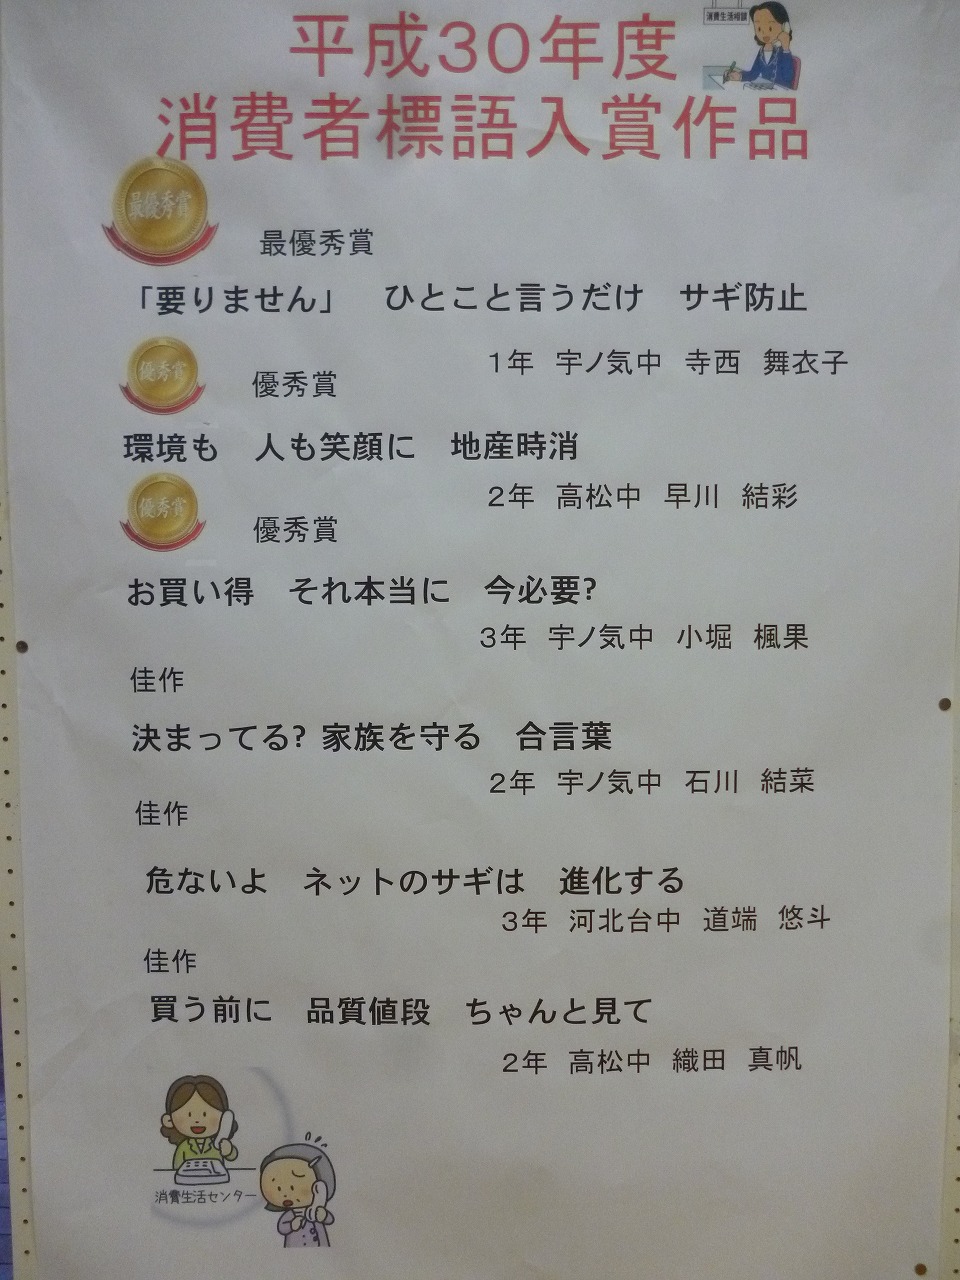 消費生活相談
平成30年度
消費者標語入賞作品
最優秀賞
最優秀賞
「要りません」　ひとこと言うだけ　サギ防止
1年　宇ノ気中　寺西　舞衣子
優秀賞
優秀賞
環境も　人も笑顔に　地産時消
2年　高松中　早川　結彩
優秀賞
優秀賞
お買い得　それ本当に　今必要?
3年　宇ノ気中　小堀　楓果
佳作
決まってる? 家族を守る　合言葉
2年　宇ノ気中　石川　結菜
佳作
危ないよ　ネットのサギは　進化する
3年　河北台中　道端　悠斗
佳作
買う前に　品質値段　ちゃんと見て
2年　高松中　織田　真帆
消費生活センター